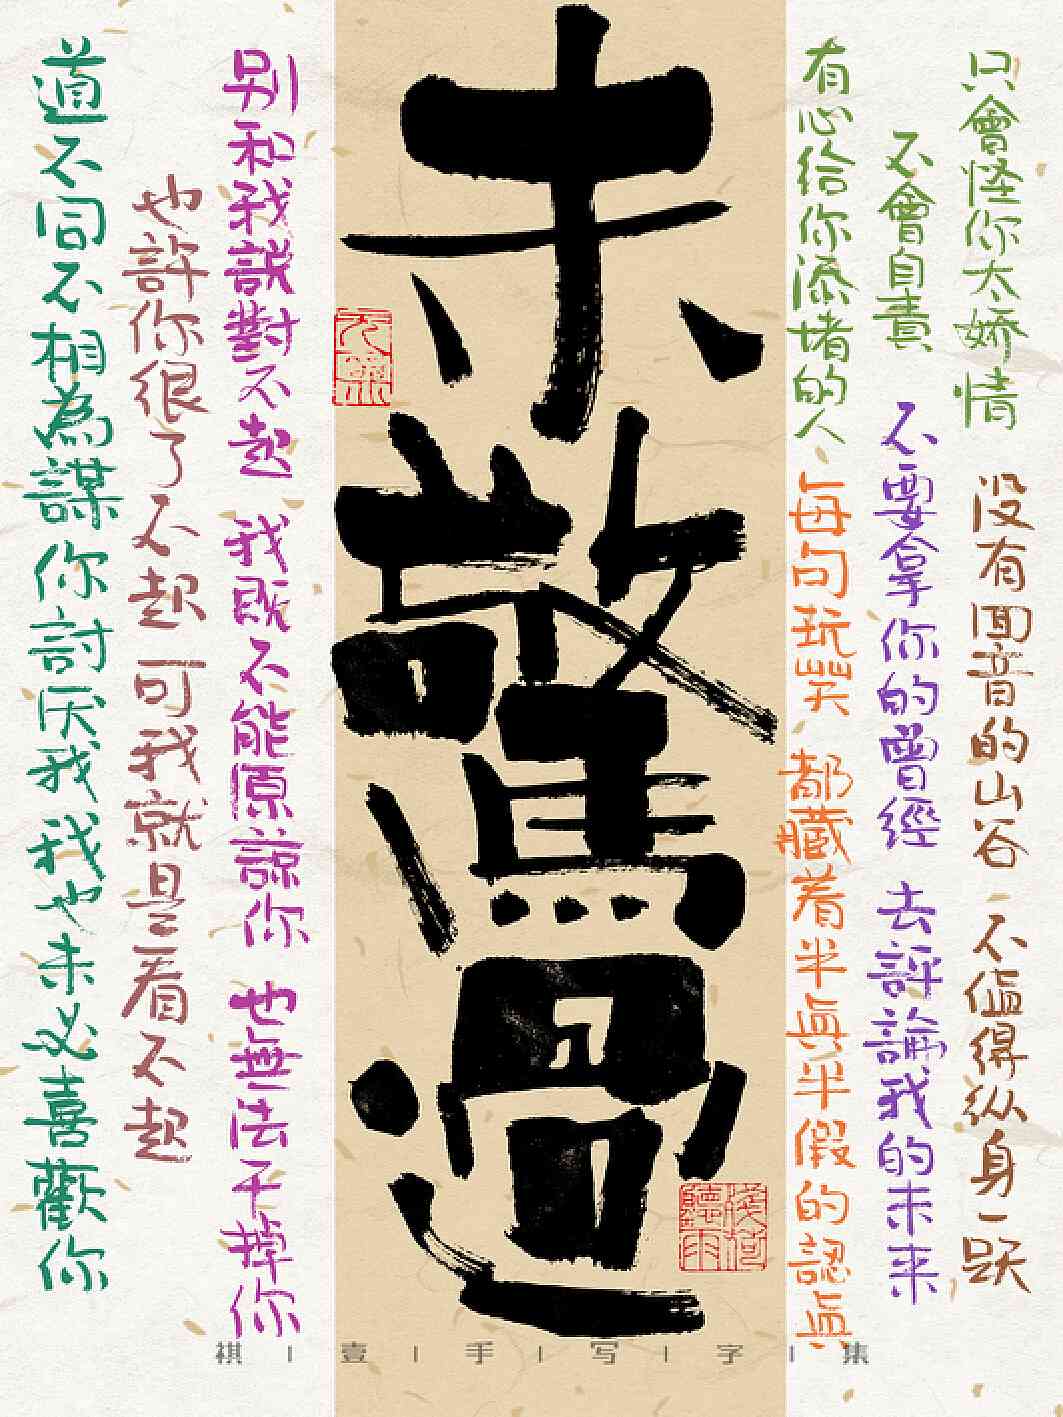 有心给你添堵的人
只會怪你太娇情
不會自責
没有面音的山谷
不值得纵身一跃
不要拿你的曾經
去評論我的未来
每句玩笑
都藏着半眞半假的認眞
未驚過
别和我説對不起
我既不能原諒你
也無法干掉你
也許你很了不起
可我就是看不起
道不同不相為謀
你討厌我我也未必喜歡你
残荷聽雨
祺|壹|手|写|字|集